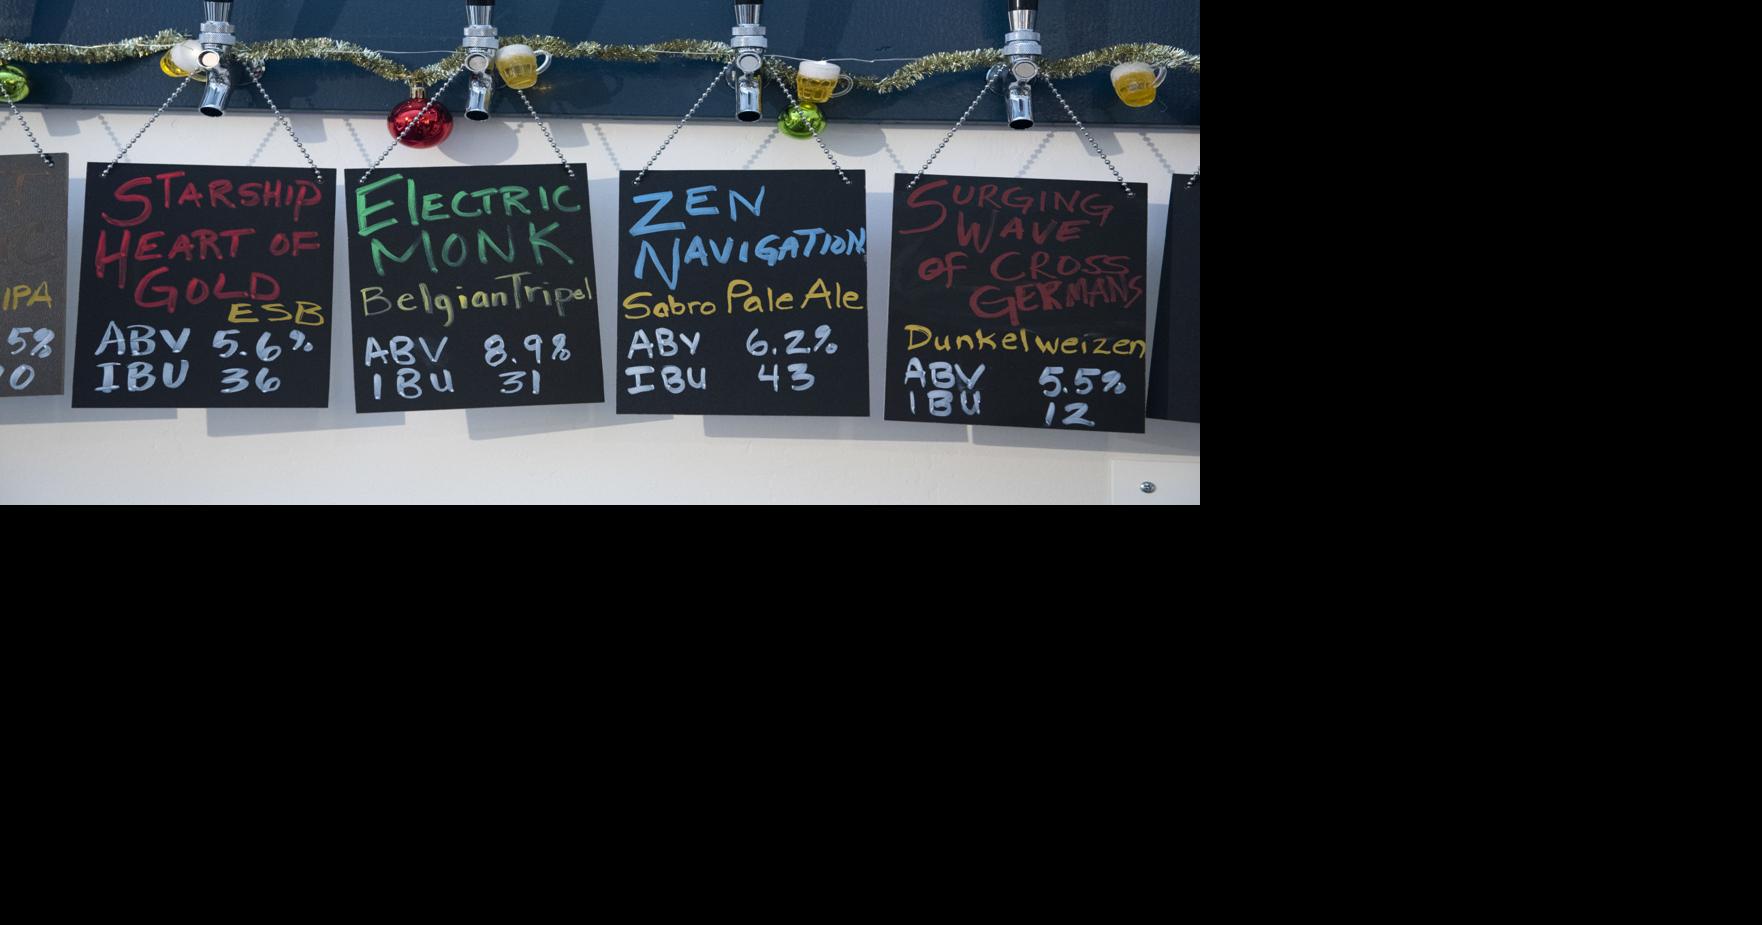 IPA
5%
STARSHIP
HEART OF
GOLD
ESB
ABV 5.6%
IBU 36
ELECTRIC
MONK
Belgian Tripel
ABV 8.9%
IBU 31
ZEN
NAVIGATION
Sabro Pale Ale
ABV 6.2%
IBU 43
SURGING
WAVE
OF CROSS
GERMANS
Dunkelweizen
ABV 5.5%
IBU 12